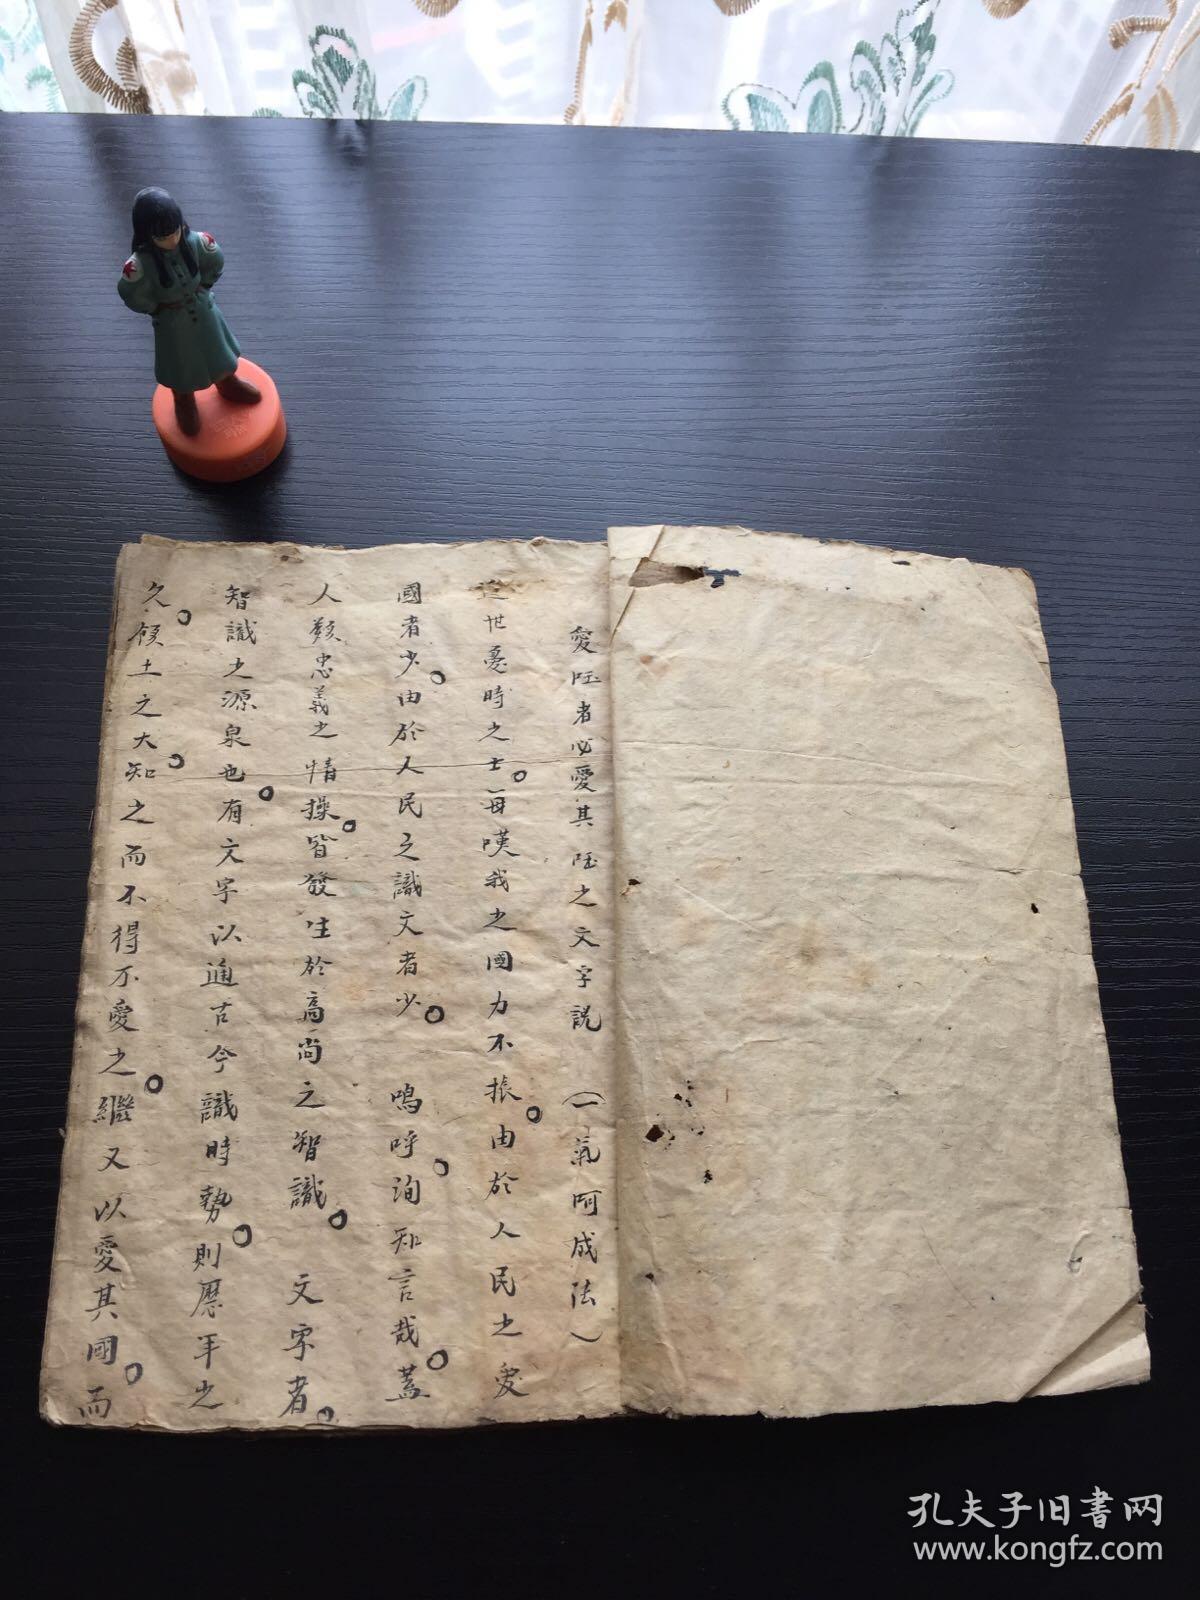 愛囯者必愛其囯之文字説（一氣呵成法）
世憂時之士每嘆我之國力不振由於人民之愛
國者少由於人民之識文者少 嗚呼洵知言哉蓋
人類忠義之情操皆發生於高尚之智識 文字者
智識之源泉也有文字以通古今識時勢則歷年之
久領土之大知之而不得不愛之繼又以愛其國而
孔夫子旧书网
www.kongfz.com